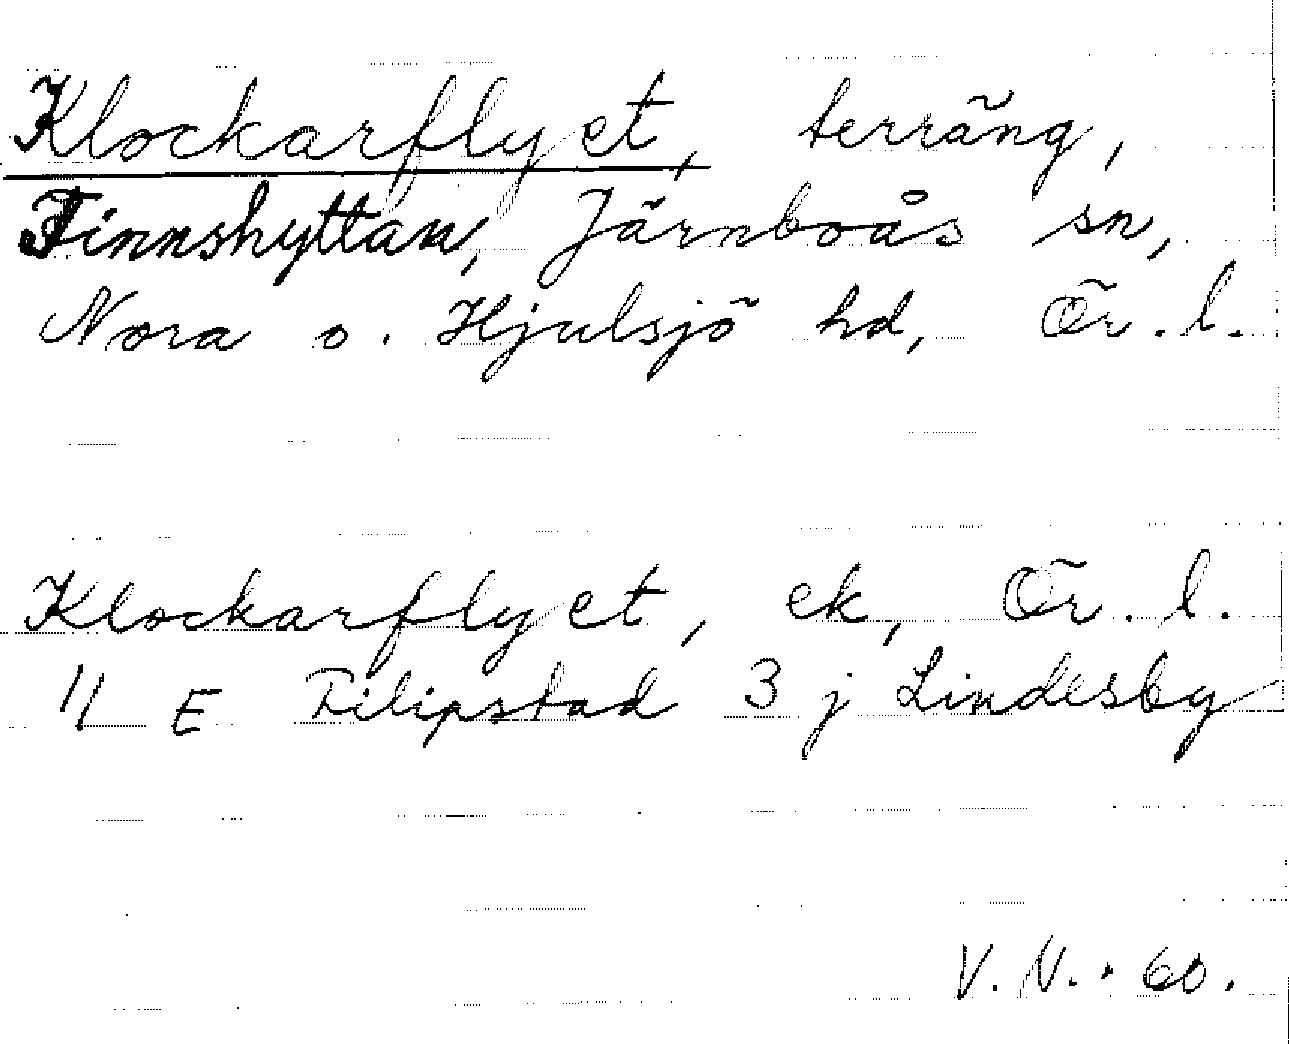 Klockarflyet, terräng,
Finnshyttan, Järnboås sn,
Nora o. Hjulsjö hd, Ör. l.
Klockarflyet, ek, Ör. l.
11 E Filipstad 3 j Lindesby
V. N. · 60.